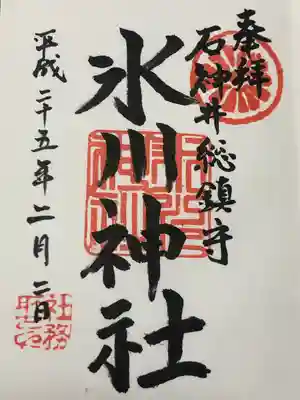 奉拝
石神井総鎮守
氷川神社
平成二十五年二月二日
社務所